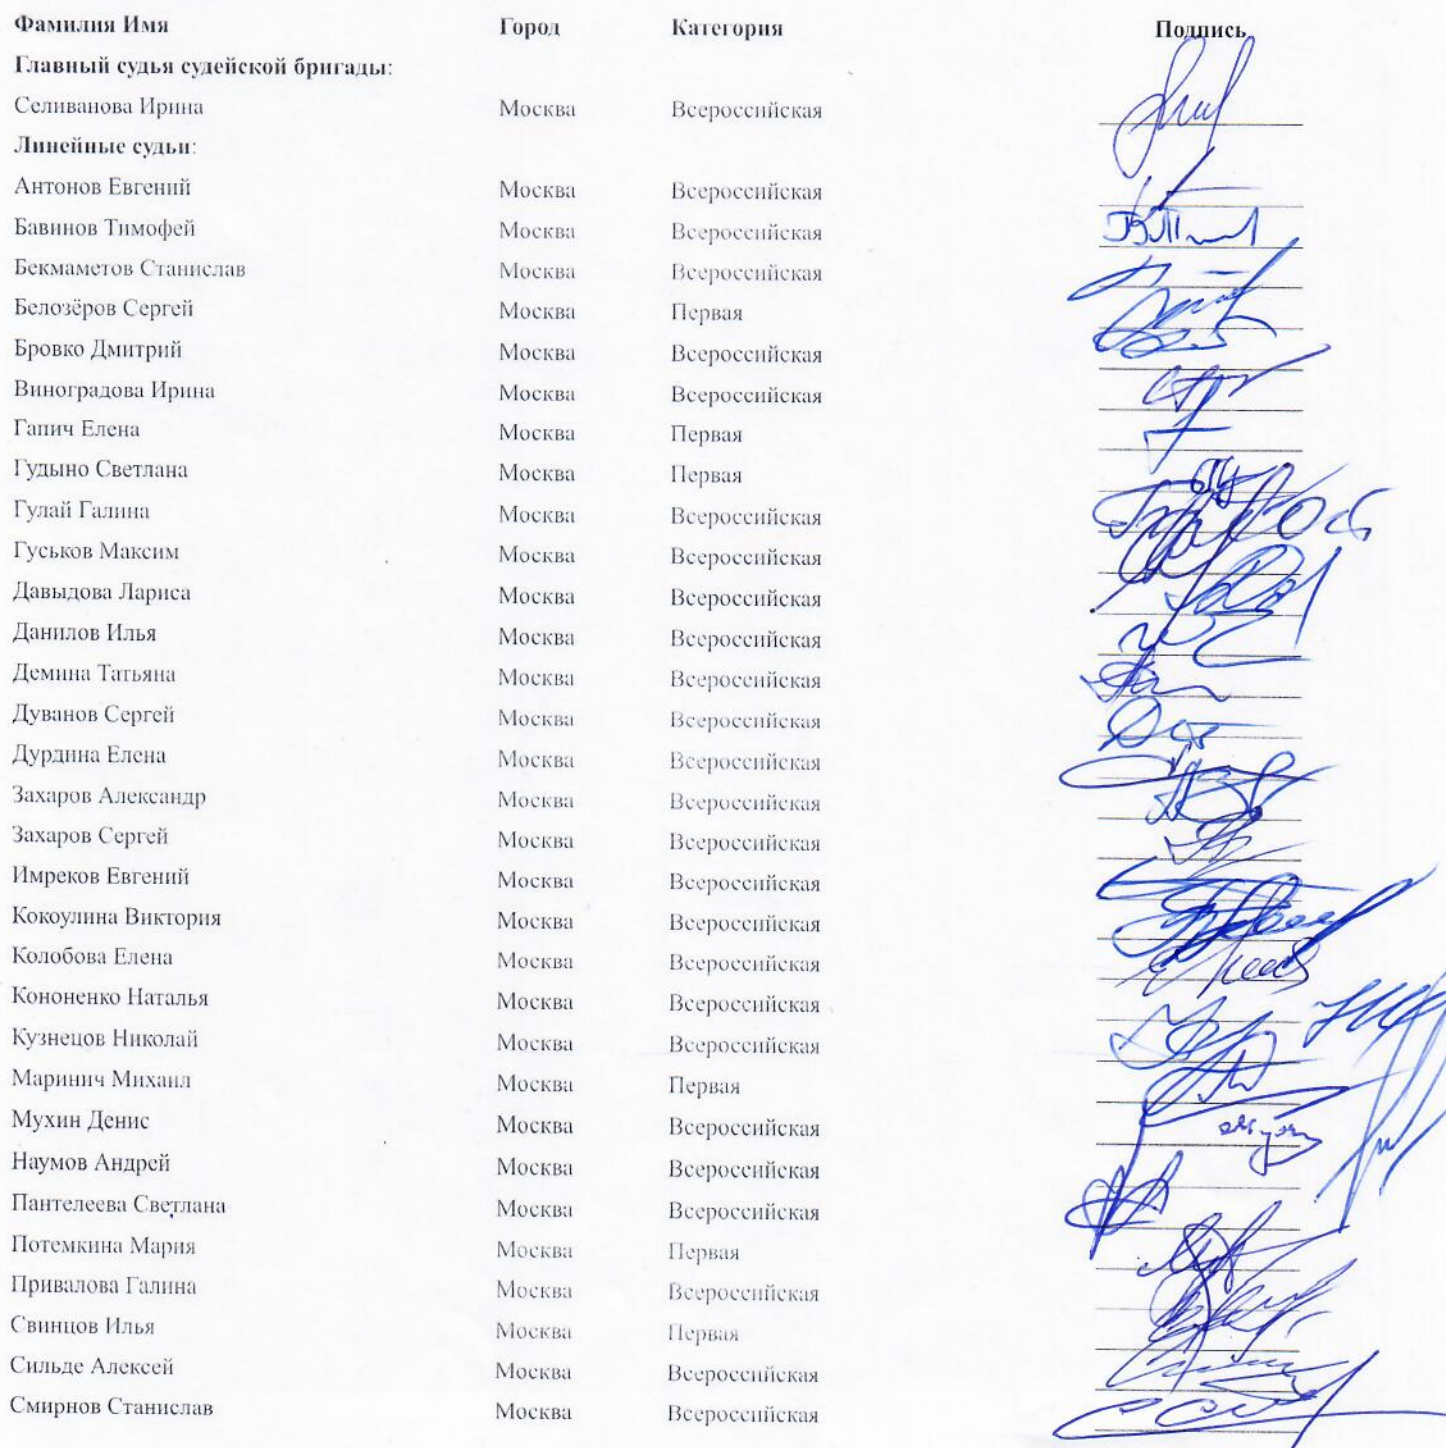 Фамилия Имя Город Категория Подпись
Главный судья судейской бригады:
Селиванова Ирина Москва Всероссийская
Линейные судьи:
Антонов Евгений Москва Всероссийская
Бавинов Тимофей Москва Всероссийская
Бекмаметов Станислав Москва Всероссийская
Белозёров Сергей Москва Первая
Бровко Дмитрий Москва Всероссийская
Виноградова Ирина Москва Всероссийская
Гапич Елена Москва Первая
Гудыно Светлана Москва Первая
Гулай Галина Москва Всероссийская
Гуськов Максим Москва Всероссийская
Давыдова Лариса Москва Всероссийская
Данилов Илья Москва Всероссийская
Демина Татьяна Москва Всероссийская
Дуванов Сергей Москва Всероссийская
Дурдина Елена Москва Всероссийская
Захаров Александр Москва Всероссийская
Захаров Сергей Москва Всероссийская
Имреков Евгений Москва Всероссийская
Кокоулина Виктория Москва Всероссийская
Колобова Елена Москва Всероссийская
Кононенко Наталья Москва Всероссийская
Кузнецов Николай Москва Всероссийская
Маринич Михаил Москва Первая
Мухин Денис Москва Всероссийская
Наумов Андрей Москва Всероссийская
Пантелеева Светлана Москва Всероссийская
Потемкина Мария Москва Первая
Привалова Галина Москва Всероссийская
Свинцов Илья Москва Первая
Сильде Алексей Москва Всероссийская
Смирнов Станислав Москва Всероссийская